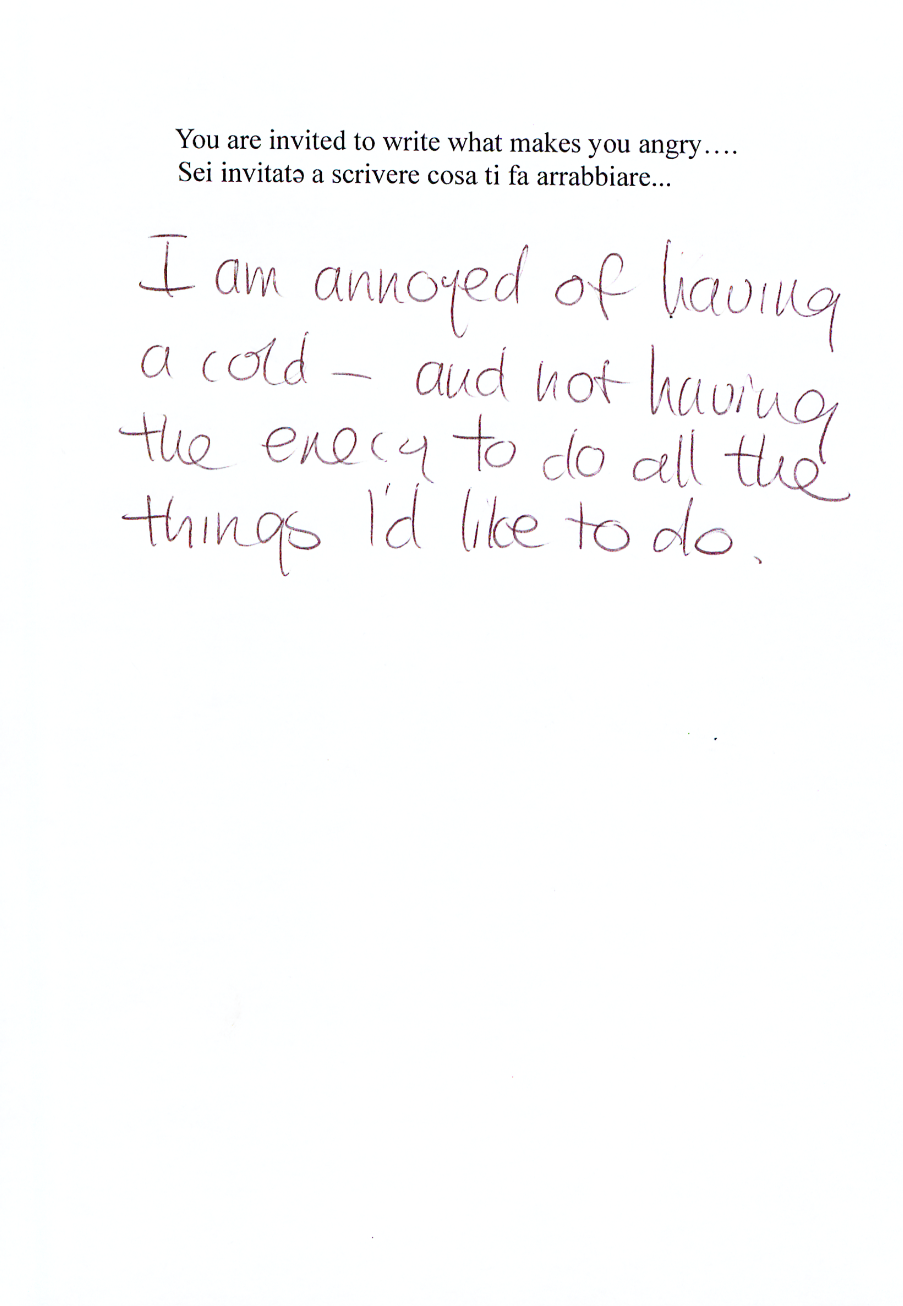 You are invited to write what makes you angry….
Sei invitatə a scrivere cosa ti fa arrabbiare...
I am annoyed of having
a cold – and not having
the enery to do all the
things I'd like to do.